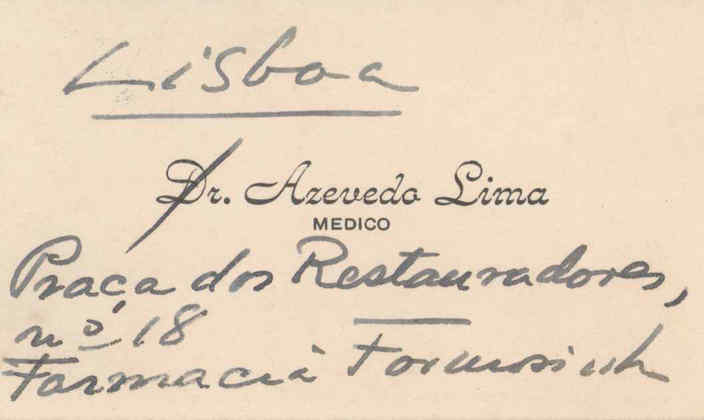 Lisboa
Dr. Azevedo Lima
MEDICO
Praça dos Restauradores,
nº 18
Farmacia Formosinh